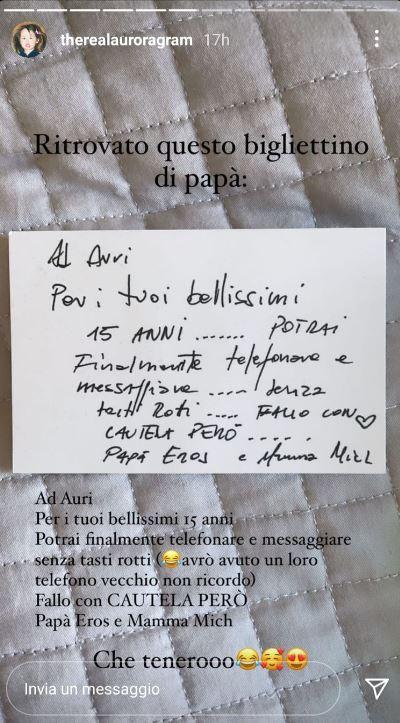 therealauroragram 17h
Ritrovato questo bigliettino
di papà:
Ad Auri
Per i tuoi bellissimi
15 ANNI ....... POTRAI
Finalmente telefonare e
messaggiare ..... senza
tasti Roti ..... FALLO CON
CAUTELA PERÒ .....
PAPÀ EROS e Mamma MICH
Ad Auri
Per i tuoi bellissimi 15 anni
Potrai finalmente telefonare e messaggiare
senza tasti rotti (😂avrò avuto un loro
telefono vecchio non ricordo)
Fallo con CAUTELA PERÒ
Papà Eros e Mamma Mich
Che tenerooo😂🥰😍
Invia un messaggio